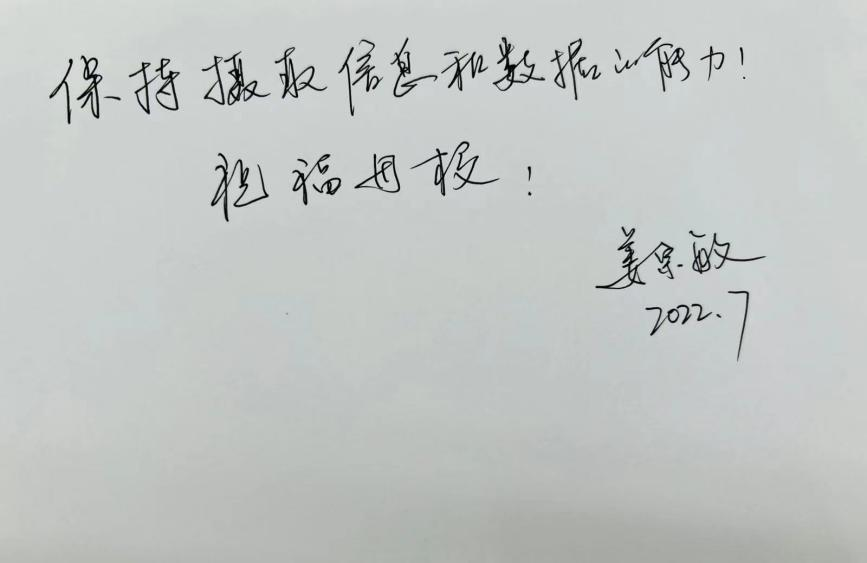 保持摄取信息和数据的能力！
祝福母校！
姜宗敏
2022.7